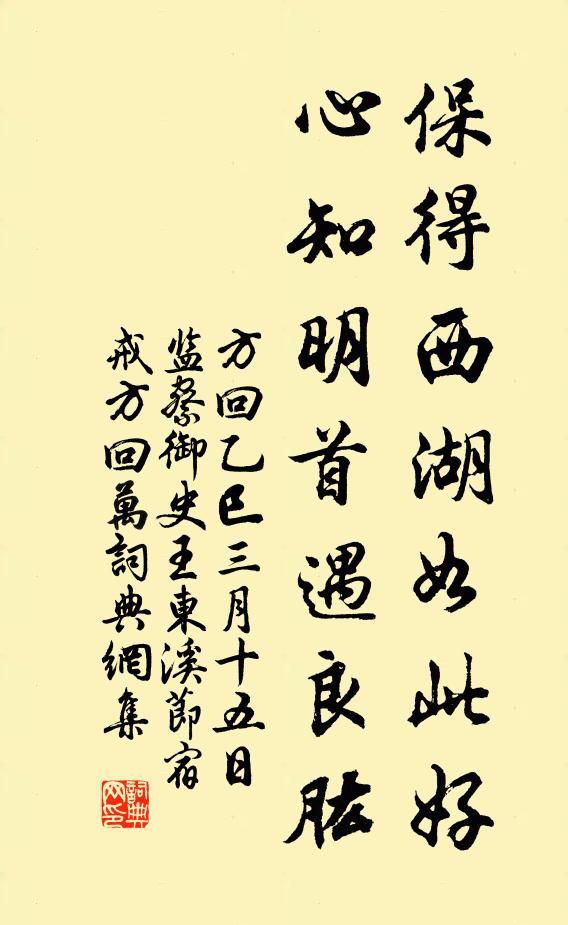 保得西湖如此好
心知明首遇良肱
方回乙巳三月十五日
监察御史王東溪節宿
戒方回萬詞典網集
詞典
网印